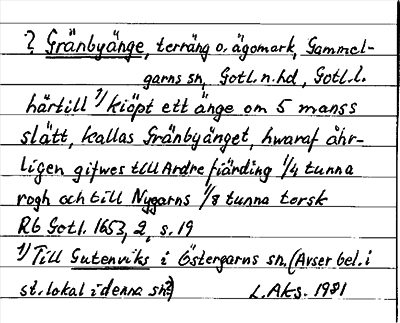 ? Gränbyänge, terräng o. ägomark, Gammel-
garns sn, Gotl. n. hd, Gotl. l.
härtill 1) kiöpt ett änge om 5 manss
slätt, kallas Gränbyänget, hwaraf åhr-
ligen gifwes till Ardre fiärding 1/4 tunna
rogh och till Nygarns 1/8 tunna torsk
Rb Gotl. 1653, 2, s. 19
1) Till Gutenviks i Östergarns sn, (Avser bel. i
st. lokal i denna sn?)
L. Aks. 1981